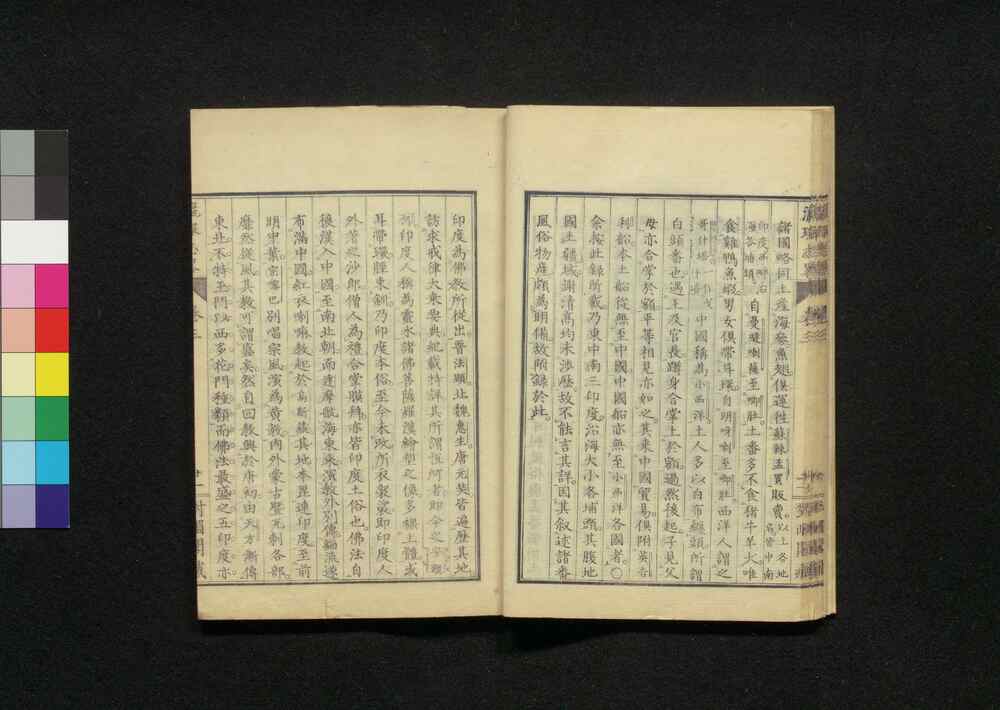 諸國略同土產海參魚翅俱運往蘇辣孟買販賣以上各地
爲皆中南
印度西
海各埔頭
自曼嗹喇薩至唧肚土番多不食猪牛羊犬唯
食雞鴨魚蝦男女俱帶耳環自明呀喇至唧肚西洋人謂之
哥什塔
中國稱爲小西洋土人多以白布纏頭所謂
白頭番也遇王及官長蹲身合掌上於額過然後起子見父
母亦合掌於額平等相見亦如之其來中國貿易俱附英吉
利船本土船從無至中國中國船亦無至小西洋各國者〇
余按此錄所載乃東中南三印度沿海大小各埔頭其腹地
國土疆域謝清高均未涉歷故不能言其詳因其叙述諸番
風俗物產頗爲明備故附錄於此
印度爲佛教所從出晉法顯北魏惠生唐元奘皆遍歷其地
訪求戒律大乘要典紀載特詳其所謂恆河者即今之安額
河印度人稱爲靈水諸佛菩薩羅漢繪塑之像多裸上體或
耳帶環脛束釧乃印度本俗至今未改所衣袈裟即印度人
外著之沙郎僧人爲禮合掌膜拜亦皆印度土俗也佛法自
後漢入中國至南北朝而達摩航海東來演教外別傳緇流遂
布滿中國紅衣喇嘛教起於烏斯藏其地本毘連印度至前
明中葉宗喀巴別唱宗風演爲黃教內外蒙古暨元刺各部
靡然從風其教可謂盛矣然自回教興於唐初由天方漸傳
東北不特玉門以西多花門種類而佛法最盛之五印度亦
卷三